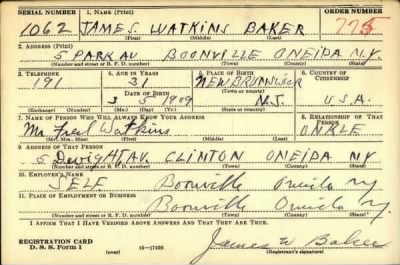 SERIAL NUMBER 1. NAME (Print) ORDER NUMBER
1062 JAMES WATKINS BAKER 775
(First) (Middle) (Last)
2. ADDRESS (Print)
5 PARK AV BOONVILLE ONEIDA N.Y.
(Number and street or R. F. D. number) (Town) (County) (State)
3. TELEPHONE 4. AGE IN YEARS 5. PLACE OF BIRTH 6. COUNTRY OF CITIZENSHIP
191 31 NEW BRUNSWICK
DATE OF BIRTH (Town or county)
3 5 1909 N.J. U.S.A.
(Exchange) (Number) (Mo.) (Day) (Yr.) (State or country)
7. NAME OF PERSON WHO WILL ALWAYS KNOW YOUR ADDRESS 8. RELATIONSHIP OF THAT PERSON
Mr Fred Watkins ONKLE
(Mr., Mrs., Miss) (First) (Middle) (Last)
9. ADDRESS OF THAT PERSON
5 Dewight AV. CLINTON ONEIDA NY
(Number and street or R. F. D. number) (Town) (County) (State)
10. EMPLOYER'S NAME
SELF Boonville Oneida NY
11. PLACE OF EMPLOYMENT OR BUSINESS
Boonville Oneida NY
(Number and street or R. F. D. number) (Town) (County) (State)
I AFFIRM THAT I HAVE VERIFIED ABOVE ANSWERS AND THAT THEY ARE TRUE.
REGISTRATION CARD
D. S. S. Form 1 (over) 16—17105 James W Baker
(Registrant's signature)